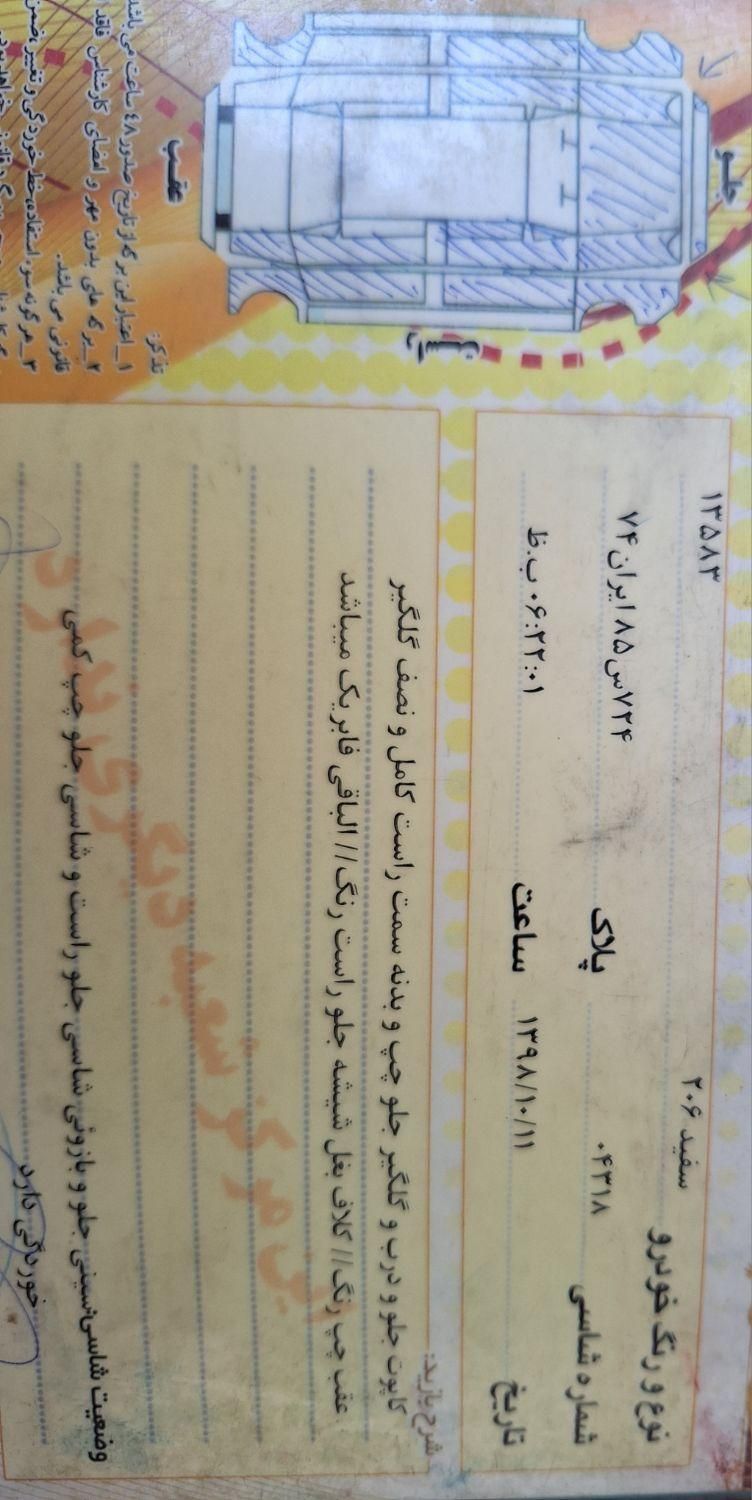 ۱۳۵۸۳
نوع و رنگ خودرو سفید ۲۰۶
شماره شاسی ۰۴۳۱۸ پلاک ۷۲۴س۸۵ ایران۷۴
تاریخ ۱۳۹۸/۱۰/۱۱ ساعت ۰۶:۲۲:۰۱ ب.ظ
شرح بازدید:
کاپوت جلو و درب و گلگیر جلو چپ و بدنه سمت راست کامل و نصف گلگیر
عقب چپ رنگ// کلاف بغل شیشه جلو راست رنگ// الباقی فابریک میباشد
این مرکز شعبه دیگری ندارد
وضعیت شاسی:سینی جلو و بازوئی شاسی جلو راست و شاسی جلو چپ کمی
خوردگی دارد
جلو
عقب
تذکر:
۱_ اعتبار این برگه از تاریخ صدور ۴۸ ساعت می باشد
۲_برگه های بدون مهر و امضای کارشناس فاقد
قانونی می باشد.
۳_هرگونه سو استفاده،خط خوردگی و تغییر،ضمن